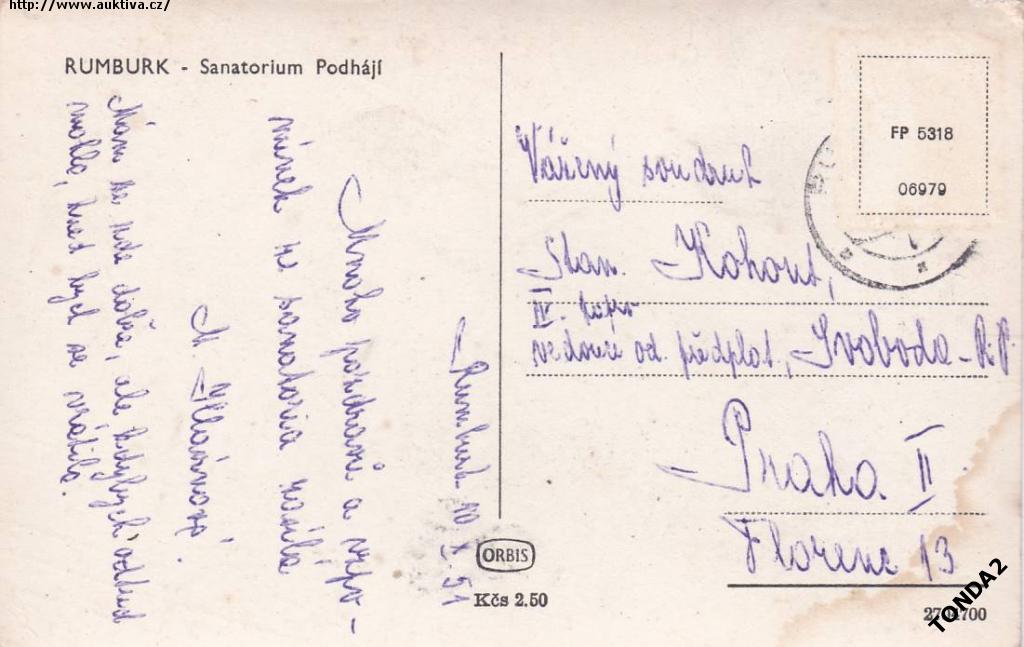 http://www.auktiva.cz/
RUMBURK - Sanatorium Podhájí
Rumburk 10. X. 51
Mnoho pozdravů a vzpo-
mínek ze sanatoria zasílá
M.
Mám se zde dobře, ale kdybych odtud
mohla, hned bych se vrátila.
Vážený soudruh
Stan. Kohout,
IV.
vedouce od. předplat., Svoboda - R.P.
Praha II
Florenc 13
FP 5318
06979
ORBIS
Kčs 2.50
TONDA2